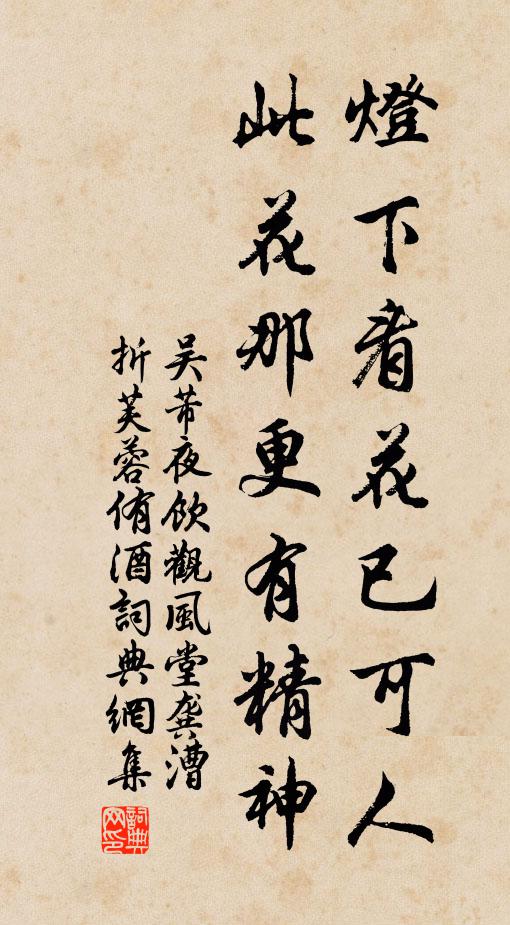 燈下看花已可人
此花那更有精神
吴芾夜飲觀風堂龔漕
折芙蓉侑酒詞典網集
詞典网印